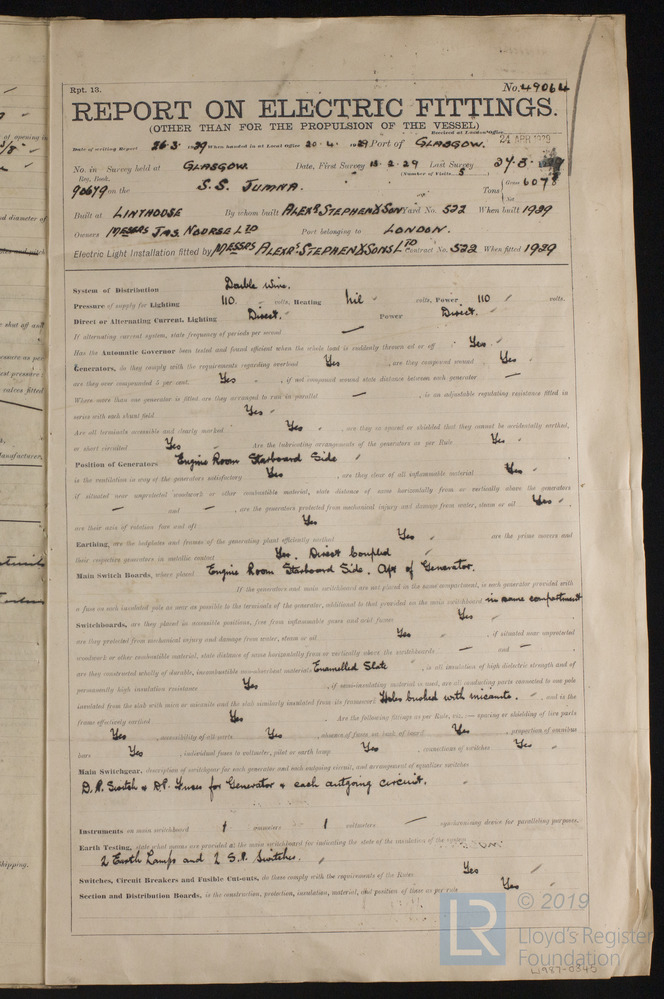 Rpt. 13.
No. 49064
REPORT ON ELECTRIC FITTINGS.
(OTHER THAN FOR THE PROPULSION OF THE VESSEL)
Received at London Office 24 APR 1929
Date of writing Report 26·3·1929 When handed in at Local Office 20·4·1929 Port of GLASGOW.
No. in Survey held at GLASGOW. Date, First Survey 18·2·29 Last Survey 27·3·1929
Reg. Book. (Number of Visits 5)
90679 on the S.S. JUMNA. Tons { Gross 6078
Net
Built at LINTHOUSE By whom built ALEXR. STEPHEN & SON Yard No. 522 When built 1929
Owners MESSRS JAS. NOURSE LTD Port belonging to LONDON.
Electric Light Installation fitted by MESSRS ALEXR. STEPHEN & SONS LTD Contract No. 522 When fitted 1929
System of Distribution Double wire.
Pressure of supply for Lighting 110 volts, Heating Nil volts, Power 110 volts.
Direct or Alternating Current, Lighting Direct. Power Direct.
If alternating current system, state frequency of periods per second —
Has the Automatic Governor been tested and found efficient when the whole load is suddenly thrown on or off Yes
Generators, do they comply with the requirements regarding overload Yes, are they compound wound Yes
are they over compounded 5 per cent. Yes, if not compound wound state distance between each generator —
Where more than one generator is fitted are they arranged to run in parallel —, is an adjustable regulating resistance fitted in
series with each shunt field Yes
Are all terminals accessible and clearly marked Yes, are they so spaced or shielded that they cannot be accidentally earthed,
or short circuited Yes Are the lubricating arrangements of the generators as per Rule Yes
Position of Generators Engine Room Starboard Side
is the ventilation in way of the generators satisfactory Yes, are they clear of all inflammable material Yes
if situated near unprotected woodwork or other combustible material, state distance of same horizontally from or vertically above the generators
— and —, are the generators protected from mechanical injury and damage from water, steam or oil Yes
are their axis of rotation fore and aft Yes
Earthing, are the bedplates and frames of the generating plant efficiently earthed Yes are the prime movers and
their respective generators in metallic contact Yes. Direct Coupled
Main Switch Boards, where placed Engine Room Starboard Side. Aft of Generator.
If the generators and main switchboard are not placed in the same compartment, is each generator provided with
a fuse on each insulated pole as near as possible to the terminals of the generator, additional to that provided on the main switchboard in same compartment
Switchboards, are they placed in accessible positions, free from inflammable gases and acid fumes Yes
are they protected from mechanical injury and damage from water, steam or oil Yes, if situated near unprotected
woodwork or other combustible material, state distance of same horizontally from or vertically above the switchboards — and —
are they constructed wholly of durable, incombustible non-absorbent material Enamelled Slate, is all insulation of high dielectric strength and of
permanently high insulation resistance Yes, if semi-insulating material is used, are all conducting parts connected to one pole
insulated from the slab with mica or micanite and the slab similarly insulated from its framework Holes bushed with micanite., and is the
frame effectively earthed Yes Are the following fittings as per Rule, viz.:— spacing or shielding of live parts
Yes, accessibility of all parts Yes, absence of fuses on back of board Yes, proportion of omnibus
bars Yes, individual fuses to voltmeter, pilot or earth lamp Yes, connections of switches Yes
Main Switchgear, description of switchgear for each generator and each outgoing circuit, and arrangement of equaliser switches
D.P. Switch & D.P. Fuses for Generator & each outgoing circuit.
Instruments on main switchboard 1 ammeters 1 voltmeters — synchronising device for paralleling purposes.
Earth Testing, state what means are provided at the main switchboard for indicating the state of the insulation of the system
2 Earth Lamps and 2 S.P. Switches.
Switches, Circuit Breakers and Fusible Cut-outs, do these comply with the requirements of the Rules Yes
Section and Distribution Boards, is the construction, protection, insulation, material, and position of these as per rule Yes
LR
© 2019
Lloyd's Register
Foundation
W987-0345